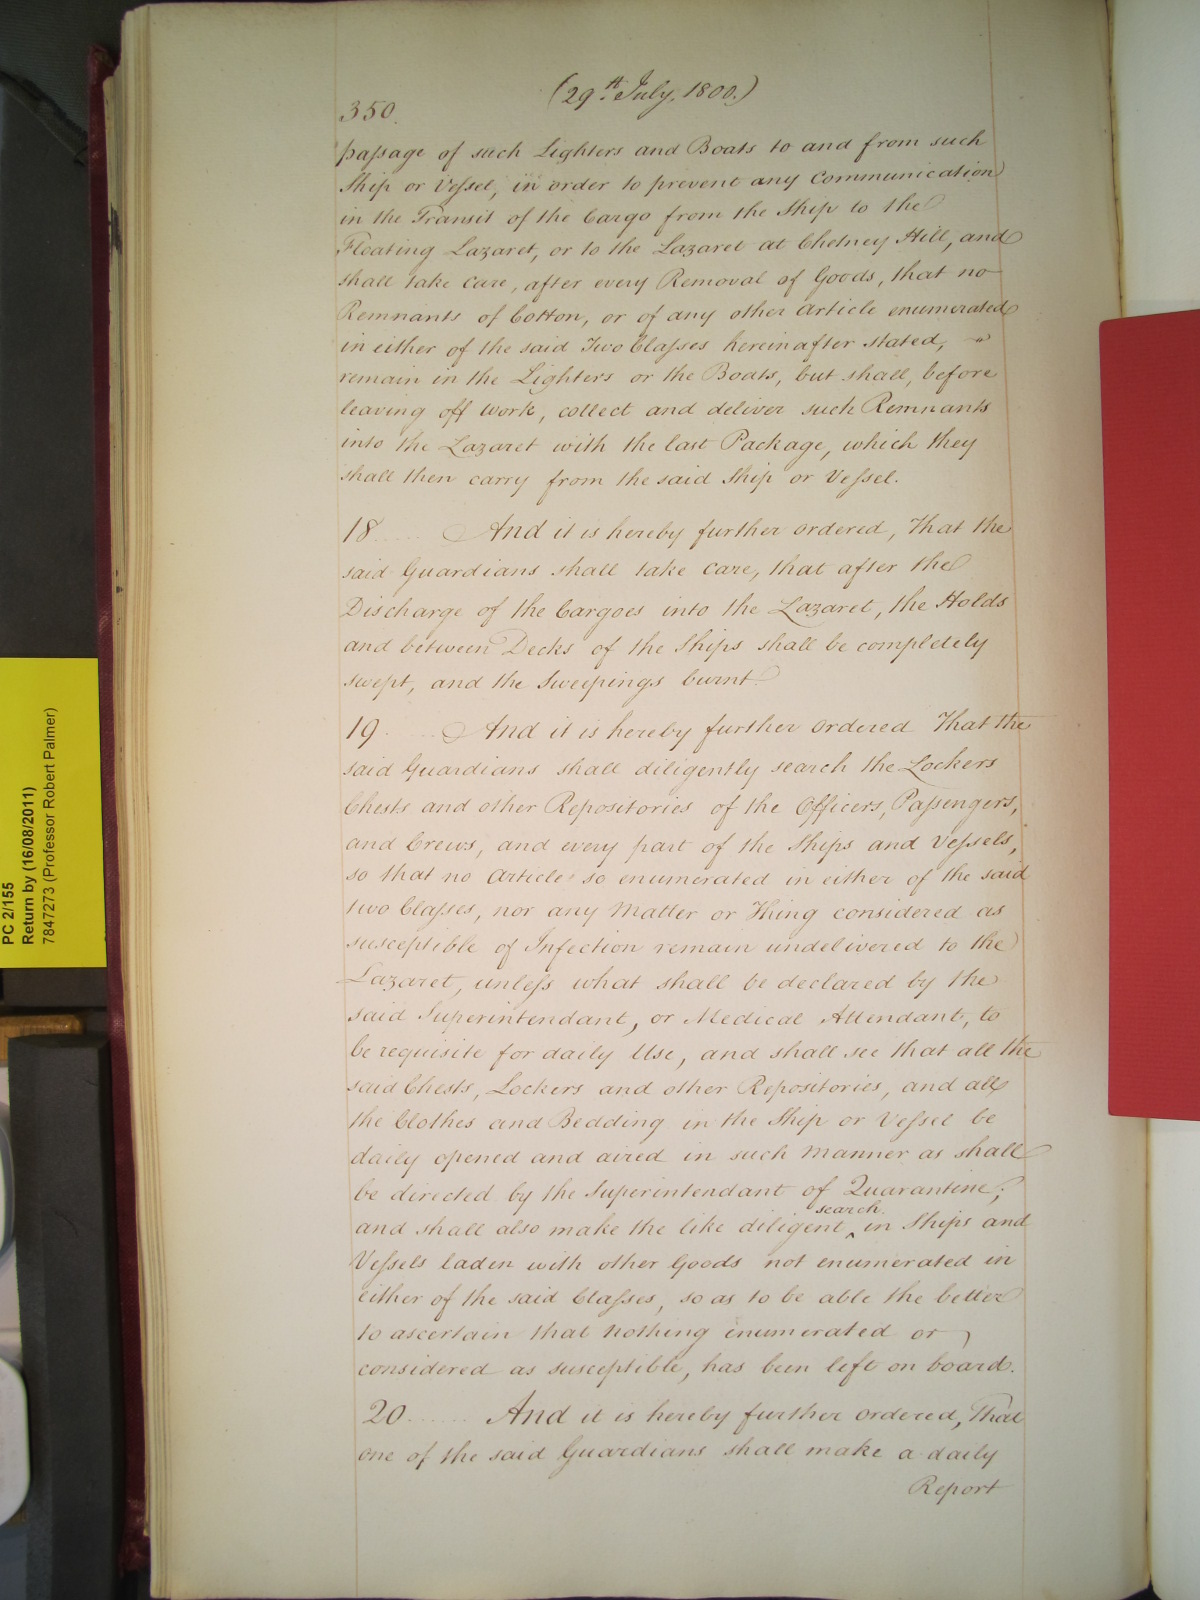 (29th July, 1800.)
350.
passage of such Lighters and Boats to and from such
Ship or Vessel, in order to prevent any Communication
in the Transit of the Cargo from the Ship to the
Floating Lazaret, or to the Lazaret at Chetney Hill, and
shall take care, after every Removal of Goods, that no
Remnants of Cotton, or of any other Article enumerated
in either of the said Two Classes hereinafter stated,
remain in the Lighters or the Boats, but shall, before
leaving off Work, collect and deliver such Remnants
into the Lazaret with the last Package, which they
shall then carry from the said Ship or Vessel.
18 And it is hereby further ordered, That the
said Guardians shall take care, that after the
Discharge of the Cargoes into the Lazaret, the Holds
and between Decks of the Ships shall be completely
swept, and the Sweepings burnt.
19 And it is hereby further ordered That the
said Guardians shall diligently search the Lockers
Chests and other Repositories of the Officers, Passengers,
and Crews, and every part of the Ships and Vessels,
so that no Article so enumerated in either of the said
two Classes, nor any Matter or Thing considered as
susceptible of Infection remain undelivered to the
Lazaret, unless what shall be declared by the
said Superintendant, or Medical Attendant, to
be requisite for daily Use, and shall see that all the
said Chests, Lockers and other Repositories, and all
the Clothes and Bedding in the Ship or Vessel be
daily opened and aired in such Manner as shall
be directed by the Superintendant of Quarantine;
search
and shall also make the like diligent ‸ in Ships and
Vessels laden with other Goods not enumerated in
either of the said Classes, so as to be able the better
to ascertain that nothing enumerated or
considered as susceptible, has been left on board.
20 And it is hereby further ordered, That
one of the said Guardians shall make a daily
Report
PC 2/155
Return by (16/08/2011)
7847273 (Professor Robert Palmer)